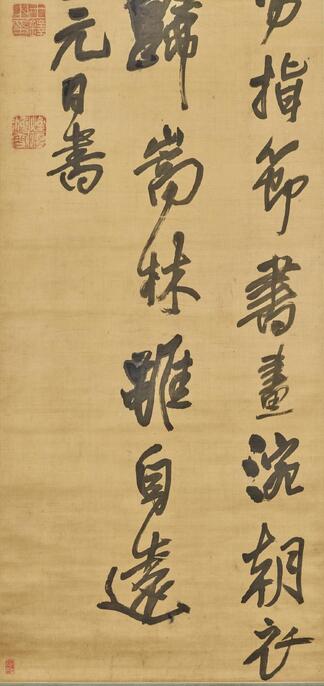 指節書畫涴朝衣
歸嵩林雖自遠
元日書